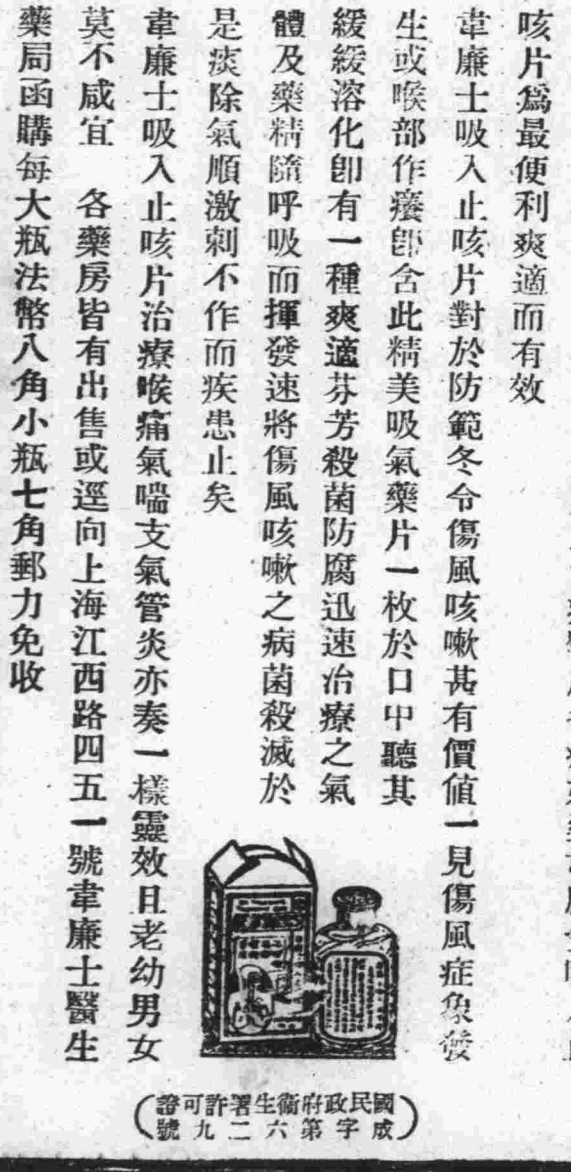 咳片爲最便利爽適而有效
韋廉士吸入止咳片對於防範冬令傷風咳嗽甚有價值一見傷風症象發
生或喉部作癢卽含此精美吸氣藥片一枚於口中聽其
緩緩溶化卽有一種爽適芬芳殺菌防腐迅速治療之氣
體及藥精隨呼吸而揮發速將傷風咳嗽之病菌殺滅於
是痰除氣順激刺不作而疾患止矣
韋廉士吸入止咳片治療喉痛氣喘支氣管炎亦奏一樣靈效且老幼男女
莫不咸宜　各藥房皆有出售或逕向上海江西路四五一號韋廉士醫生
藥局函購每大瓶法幣八角小瓶七角郵力免收
國民政府衞生署許可證
成字第六二九號